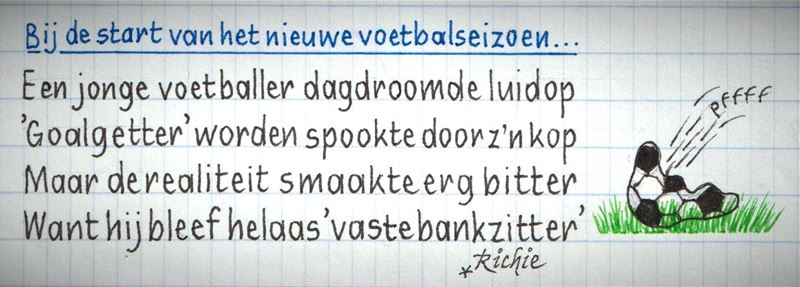 Bij de start van het nieuwe voetbalseizoen...
Een jonge voetballer dagdroomde luidop
'Goalgetter' worden spookte door z'n kop
Maar de realiteit smaakte erg bitter
Want hij bleef helaas 'vaste bankzitter'
*Richie
pffff